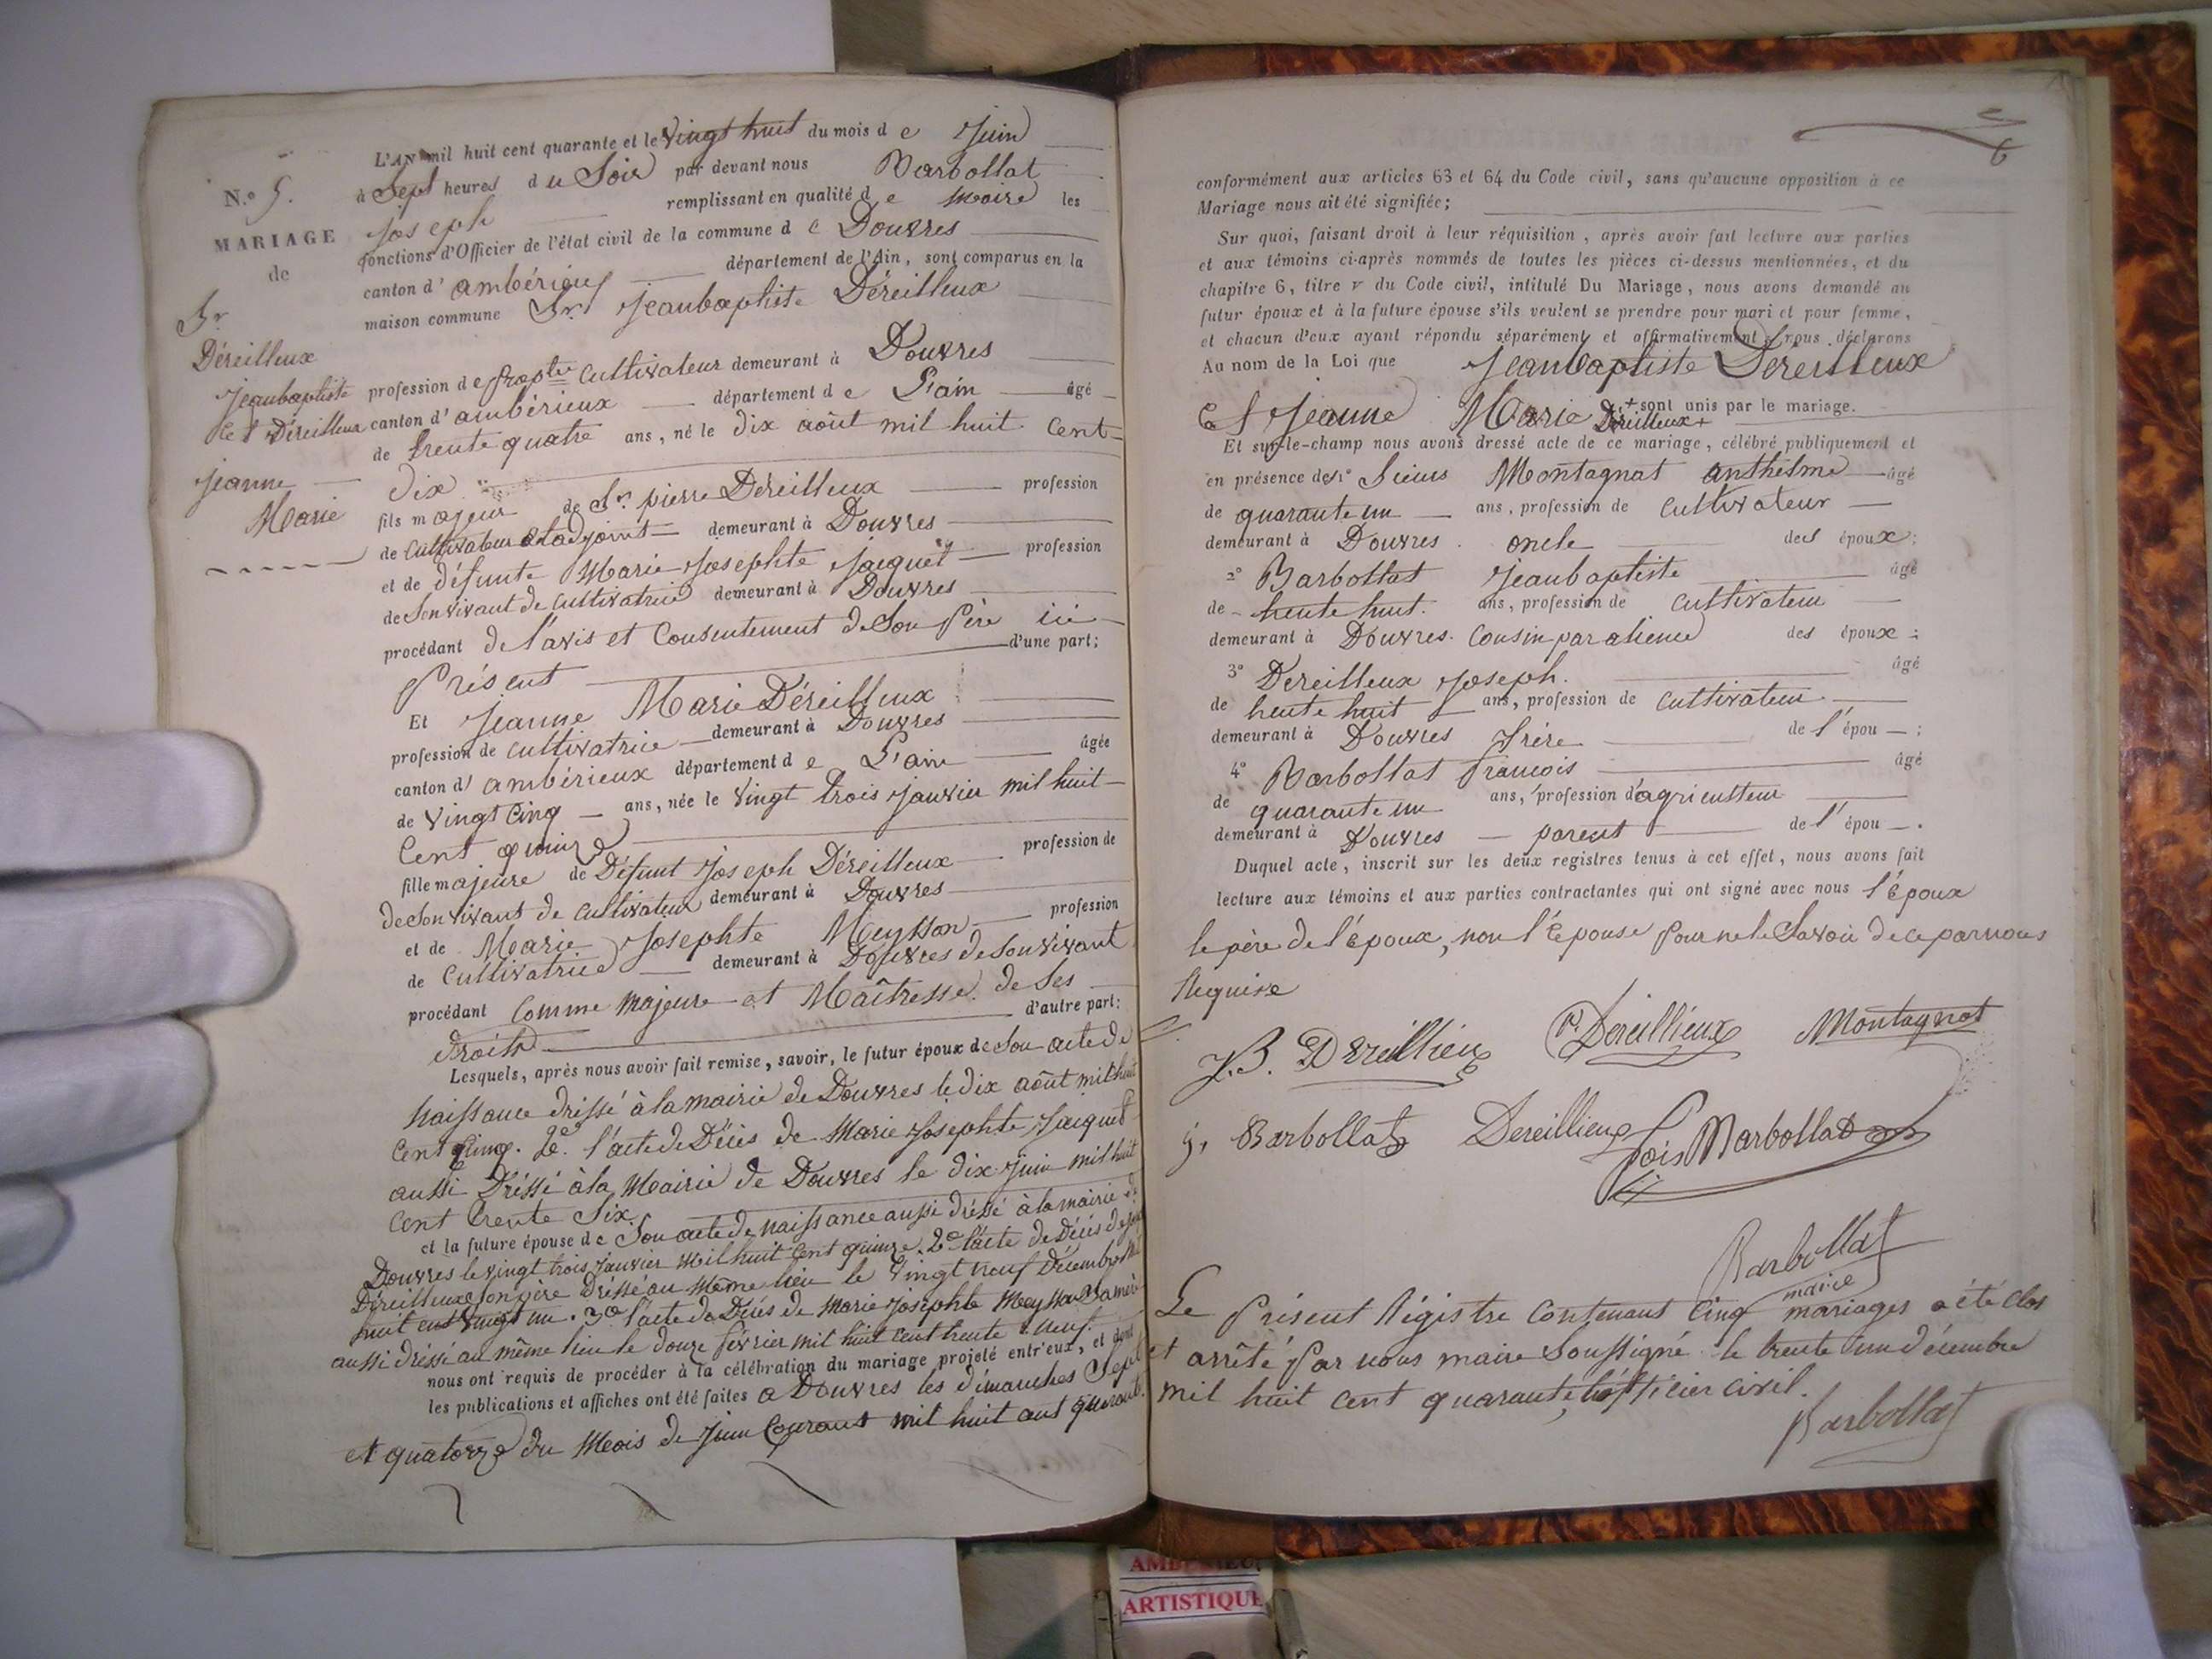 L'AN mil huit cent quarante et le vingt huit du mois d e Juin
N.o 5.
à Sept heures d u Soir par devant nous Barbollat
Joseph remplissant en qualité d e Maire les
MARIAGE
fonctions d'Officier de l'état civil de la commune d e Douvres
de
canton d' ambérieux département de l'Ain, sont comparus en la
maison commune Sr. Jeanbaptiste Déreilleux
Sr.
Déreilleux
Jeanbaptiste
et Déreilleux
Jeanne
Marie
profession de propre cultivateur demeurant à Douvres
canton d' ambérieux département d e L'ain âgé
de trente quatre ans, né le dix août mil huit cent
dix
fils majeur de Sr. pierre Déreilleux profession
de cultivateur et adjoint demeurant à Douvres
et de défunte Marie Josephte Jacquet profession
de Son vivant de cultivatrice demeurant à Douvres
procédant de l'avis et Consentement de Son Père ici
d'une part;
Présent
Et Jeanne Marie Déreilleux
profession de cultivatrice demeurant à Douvres
canton d' ambérieux département d e L'ain âgée
de vingt cinq ans, née le vingt trois janvier mil huit
Cent quinze
fille majeure de Défunt Joseph Déreilleux profession de
de Son vivant de cultivateur demeurant à Douvres
et de Marie Josephte Meysson profession
de cultivatrice demeurant à Douvres de Son vivant
procédant Comme Majeure et Maîtresse de Ses
d'autre part:
Droits
Lesquels, après nous avoir fait remise, savoir, le futur époux de Son acte de
naissance dréssé à la mairie de Douvres le dix août mil huit
Cent Cinq. 2e. l'acte de Décès de Marie Josephte Jacquet
aussi Dréssé à la Mairie de Douvres le dix juin mil huit
Cent trente Six.
et la future épouse d e Son acte de naissance aussi dréssé à la mairie de
Douvres le vingt trois janvier mil huit Cent quinze. 2e l'acte de Décès de
Déreilleux Son père Dréssé au Même lieu le vingt neuf Décembre mil
huit cent vingt un. 3e l'acte de Décès de Marie Josephte Meysson Sa mère
aussi dréssé au même lieu le douze février mil huit cent trente neuf.
nous ont requis de procéder à la célébration du mariage projeté entr'eux, et dont
les publications et affiches ont été faites a Douvres les dimanches Sept
et quatorze du Mois de Juin Courant mil huit cent quarante.
6
conformément aux articles 63 et 64 du Code civil, sans qu'aucune opposition à ce
Mariage nous ait été signifiée;
Sur quoi, faisant droit à leur réquisition, après avoir fait lecture aux parties
et aux témoins ci-après nommés de toutes les pièces ci-dessus mentionnées, et du
chapitre 6, titre v du Code civil, intitulé Du Mariage, nous avons demandé au
futur époux et à la future épouse s'ils veulent se prendre pour mari et pour femme,
et chacun d'eux ayant répondu séparément et affirmativement, nous déclarons
Au nom de la Loi que Jeanbaptiste Dereilleux
et Jeanne Marie Déreilleux + sont unis par le mariage.
Et sur-le-champ nous avons dressé acte de ce mariage, célébré publiquement et
en présence des 1o Sieurs Montagnat anthelme âgé
de quarante un ans, profession de cultivateur
demeurant à Douvres. oncle des époux;
2o Barbollat Jeanbaptiste âgé
de trente huit. ans, profession de cultivateur
demeurant à Douvres. Cousin par alience des époux;
3o Dereilleux Joseph. âgé
de trente huit ans, profession de cultivateur
demeurant à Douvres frère de l'épou ;
4o Barbollat francois âgé
de quarante un ans, profession d'agriculteur
demeurant à Douvres parent de l'épou .
Duquel acte, inscrit sur les deux registres tenus à cet effet, nous avons fait
lecture aux témoins et aux parties contractantes qui ont signé avec nous l'époux
le père de l'époux, non l'épouse pour ne le Savoir de ce par nous
Requise
J.B. Dereillieux P. Dereillieux Montagnat
J, Barbollat Dereillieux fois Barbollat
Barbollat
maire
Le Présent Régistre Contenant Cinq mariages a été clos
et arrêté Par nous maire Soussigné le trente un décembre
mil huit cent quarante, l'officier civil.
Barbollat
ARTISTIQUE